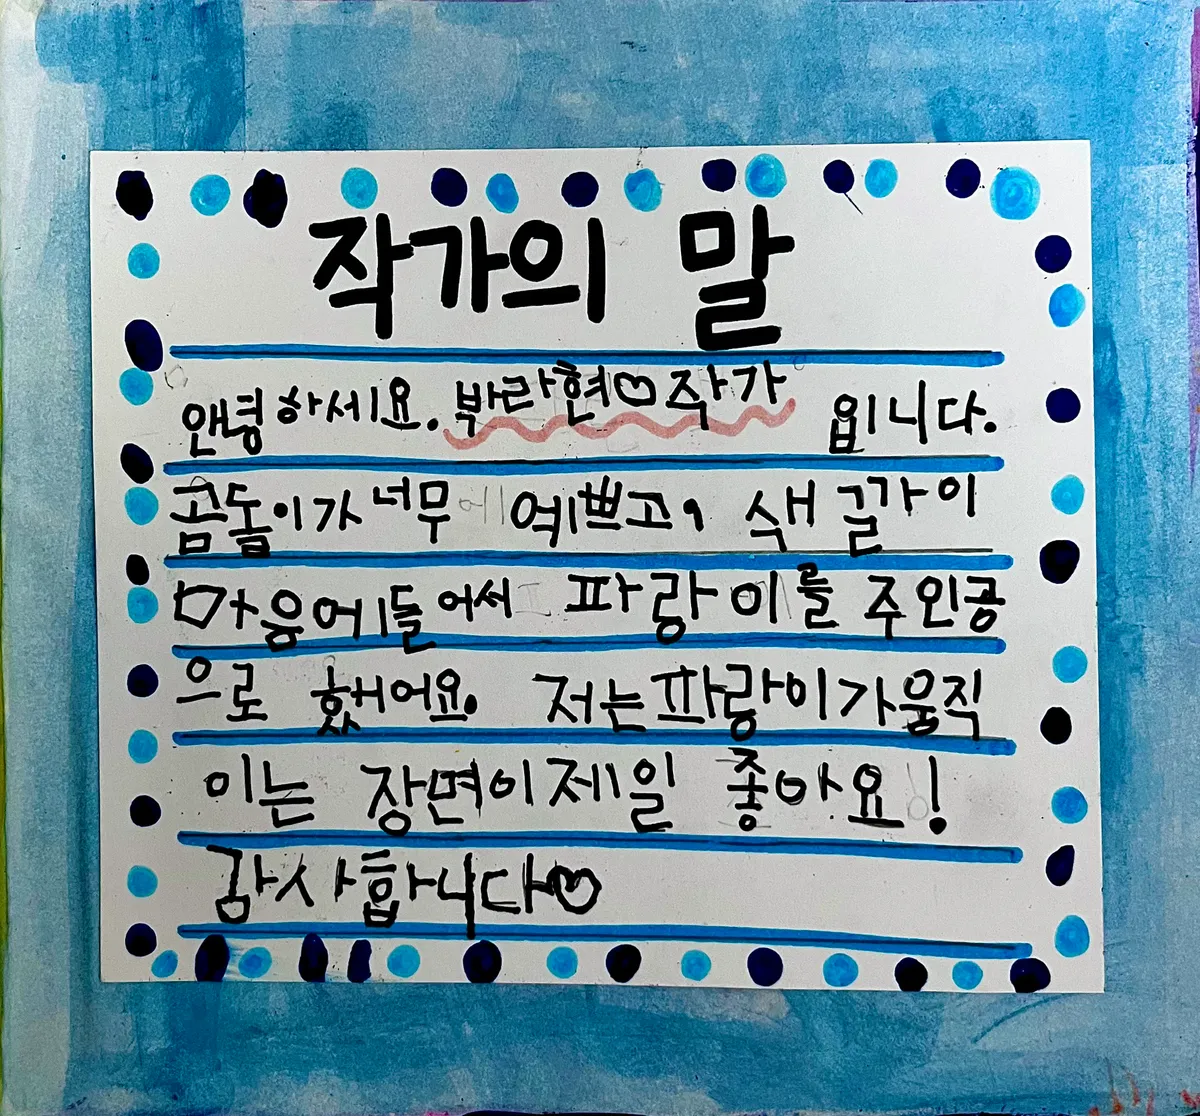 작가의 말
안녕하세요. 박라현♡작가 입니다.
곰돌이가 너무 예쁘고, 색깔이
마음에 들어서 파랑이를 주인공
으로 했어요. 저는 파랑이가 움직
이는 장면이 제일 좋아요!
감사합니다♡